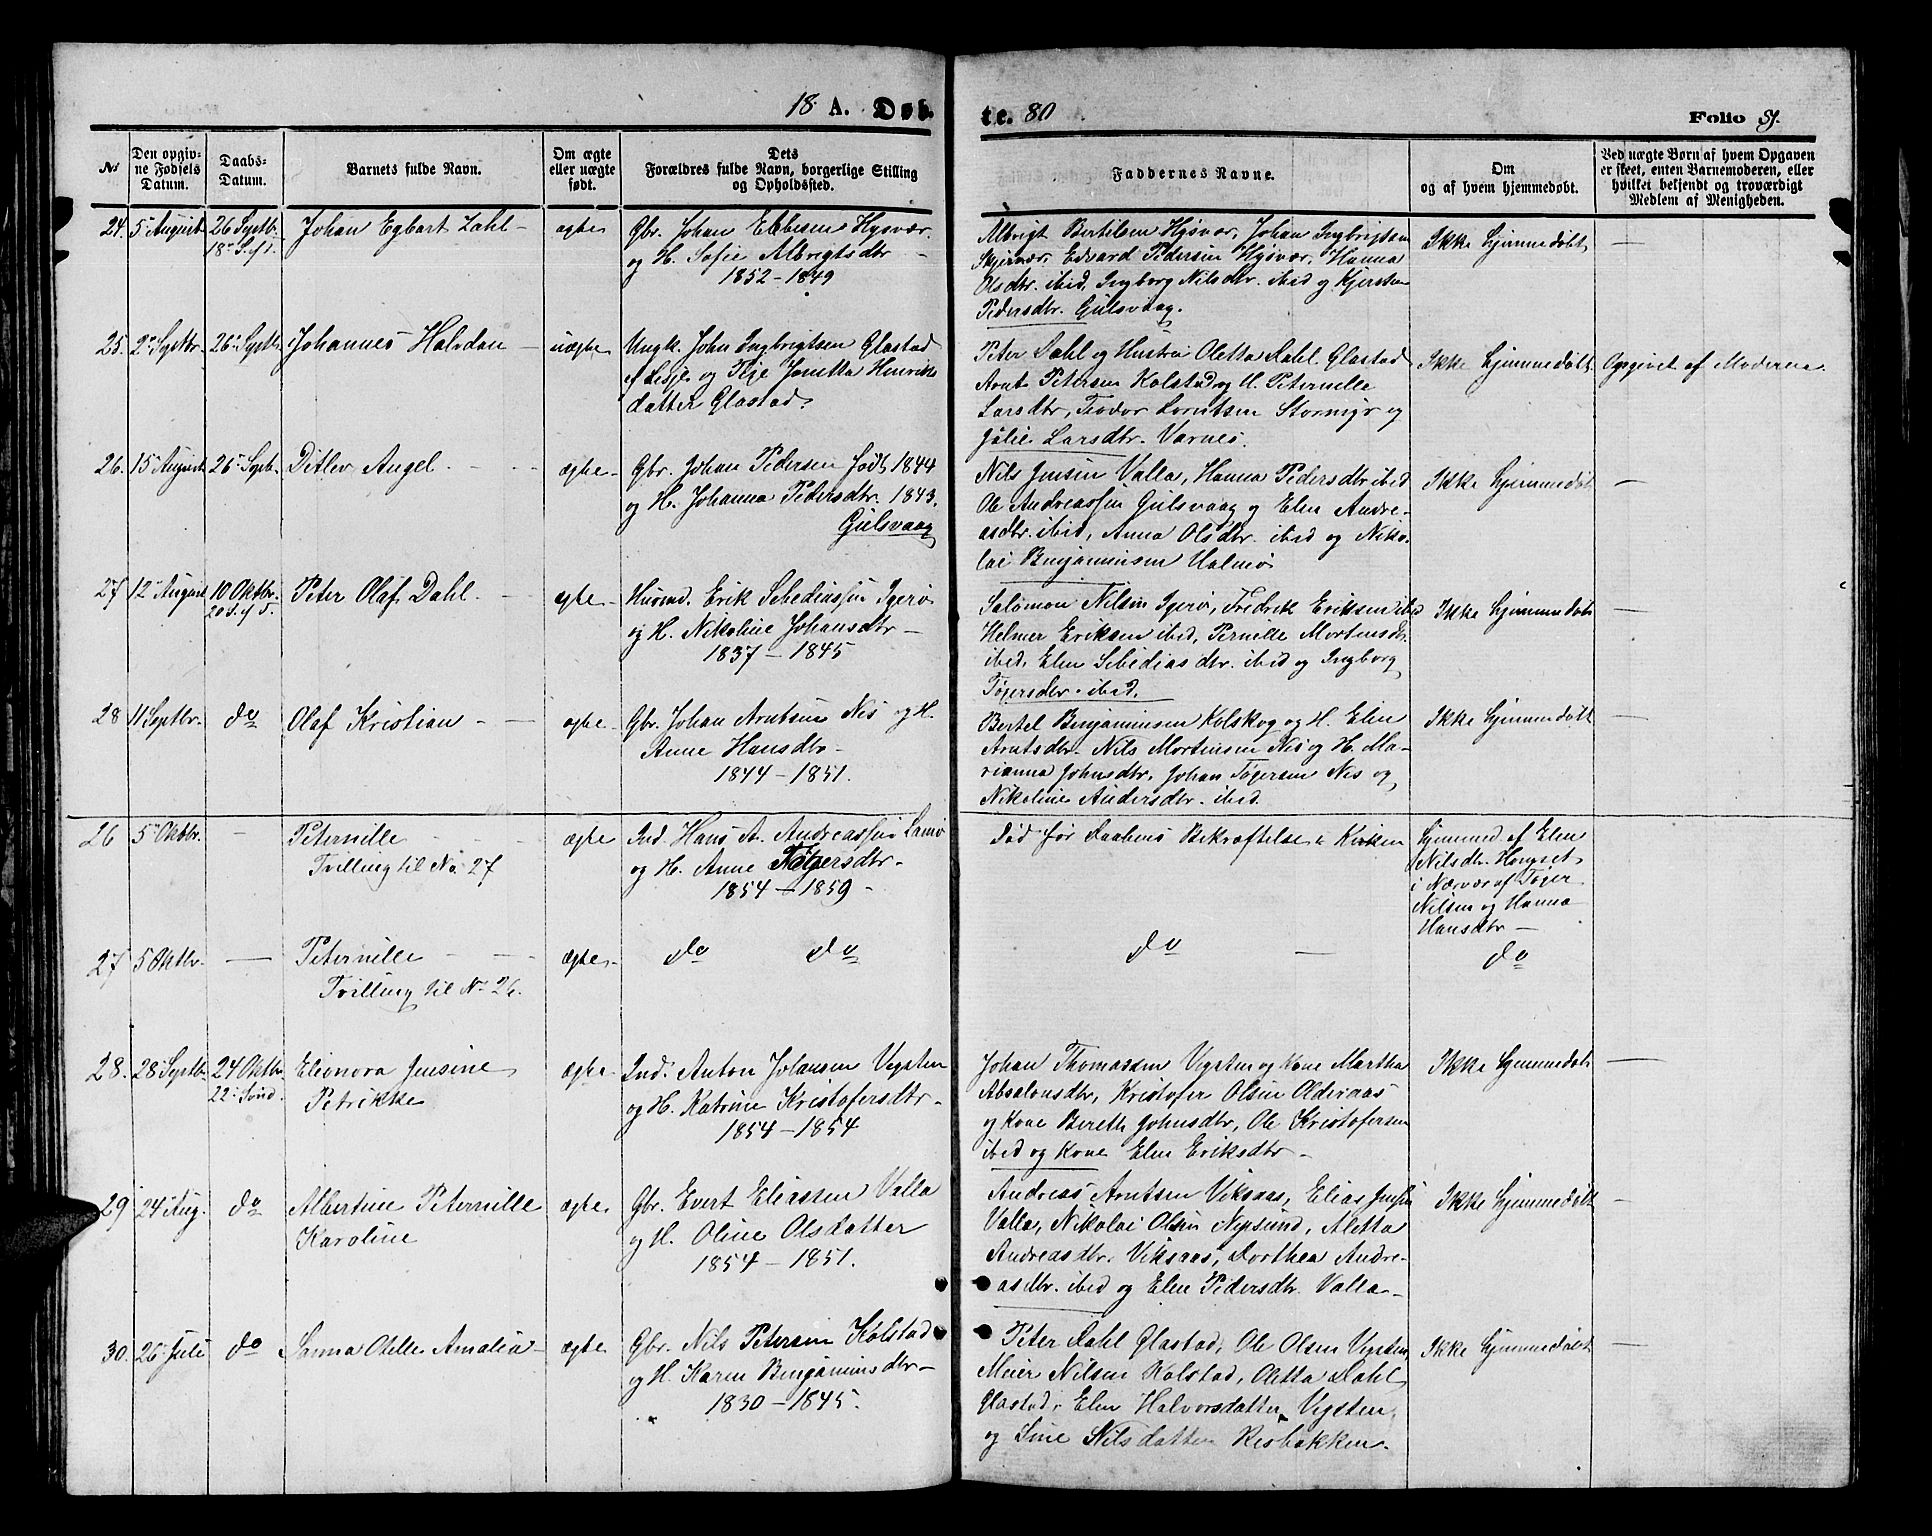 18 A. Døb-
te. 80
Folio 81.
No
Den opgiv-
ne Fødsels
Datum.
Daabs-
Datum.
Barnets fulde Navn.
Om ægte
eller uægte
født.
Dets
Forældres fulde Navn, borgerlige Stilling
og Opholdssted.
Faddernes Navne.
Om
og af hvem hjemmedøbt.
Ved uægte Børn af hvem Opgaven
er skeet, enten Barnemoderen, eller
hvilket bekjendt og troværdigt
Medlem af Menigheden.
24. 5 August 26 Septb.
18 S. e/T.
Johan Egbart Zahl - ægte
Gbr. Johan Ebbesen Hysvær
og H. Sofie Albrigtsdtr -
1852 - 1849
Albrigt Bertilsen Hysvær, Johan Ingbrigtsen
Skjervær, Edvard Pedersen Hysvær, Hanna
Olsdtr. ibid, Ingborg Nilsdtr. ibid og Kjersten
Pedersdtr. Gulsvaag.
Ikke hjemmedøbt -
25. 2 Septbr. 26 Septb. Johannes Halvdan - uægte
Ungk. John Ingbrigtsen Glastad
af Lesje og Pige Jonetta Henriks
datter Glastad.
Peter Dahl og Hustru Oletta Dahl Glastad
Arnt Petersen Kolstad og H. Peternille
Larsdtr, Teodor Lorntsen Stormyr og
Julie Larsdtr. Varnes.
Ikke hjemmedøbt Opgivet af Moderen.
26. 15 August 26 Septb. Ditlev Angel - - - ægte -
Gbr. Johan Pedersen født 1844
og H. Johanna Pedersdtr. 1843.
Gulsvaag
Nils Jensen Valla, Hanna Pedersdtr ibid
Ole Andreassen Gulsvaag og Elen Andre-
asdtr. ibid, Anna Olsdtr. ibid og Niko-
lai Benjaminsen Halmø
Ikke hjemmedøbt -
27 12 August 10 Oktbr.
20 S. e/T.
Peter Olaf Dahl - - ægte -
Husmd. Erik Sebediassen Igerø
og H. Nikoline Johansdtr -
1837 - 1845
Salomon Nilsen Igerø, Fredrik Eriksen ibid
Helmer Eriksen ibid, Pernille Mortensdtr
ibid, Elen Sebedias dtr. ibid og Ingborg
Tøgersdtr. ibid.
Ikke hjemmedøbt -
28 11 Septbr. do Olaf Kristian - - ægte -
Gbr. Johan Arntsen Nes og H.
Anne Hansdtr -
1844 - 1851.
Bertel Benjaminsen Kolskog og H. Elen
Arntsdtr. Nils Mortensen Nes og H. Ma-
rianna Johnsdtr, Johan Tøgersen Nes og
Nikoline Andersdtr. ibid.
Ikke hjemmedøbt -
26 5 Oktbr. - Peternille - -
Tvilling til No. 27
ægte
Ind. Hans A. Andreassen
og H. Anne Tøgersdtr -
1854 - 1859 -
Død før Daabens Bekræftelse i Kirken
Hjemmed. af Elen
Nilsdtr. Hongset
i Nærvær af Tøger
Nilsen og Hanna
Hansdtr -
27 5 Oktbr. - Peternille - -
Tvilling til No 26.
ægte - do do
do - do
28. 28 Septb. 24 Oktbr.
22 Sønd.
Elionora Jensine
Petrikke
ægte
Ind. Anton Johansen Vegsten
og H. Katrine Kristofersdtr -
1854 - 1854
Johan Thomassen Vegsten og Kone Martha
Absalonsdtr, Kristofer Olsen Olderaas
og Kone Bereth Johnsdtr, Ole Kristofersen
ibid og Kone Elen Eriksdtr -
Ikke hjemmedøbt -
29 24 Aug. do Albertine Peternille
Karoline
ægte -
Gbr. Evert Eliassen Valla
og H. Oline Olsdatter
1854 - 1851.
Andreas Arntsen Viksaas, Elias Jensen
Valla, Nikolai Olsen Nysund, Aletta
Andreasdtr. Viksaas, Dorthea Andre-
asdtr. ibid og Elen Pedersdtr. Valla -
Ikke hjemmedøbt -
30. 26 Juli do Sanna Otelle Amalia - ægte
Gbr. Nils Petersen Kolstad
og H. Karen Benjaminsdtr -
1830 - 1845.
Peter Dahl Glastad, Ole Olsen Vegsten,
Meier Nilsen Kolstad, Oletta Dahl
Glastad, Elen Halvorsdatter Vegsten,
og Sine Nilsdatter Resbakken.
Ikke hjemmedøbt -